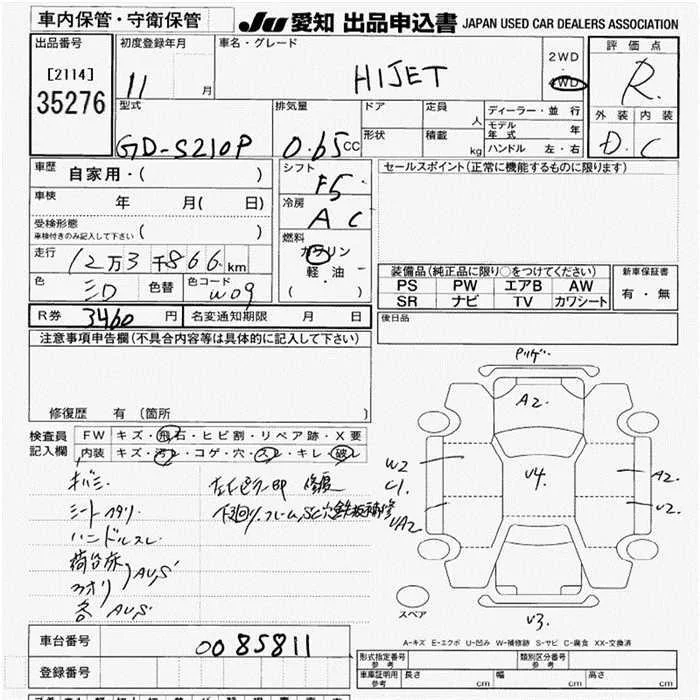 車内保管・守衛保管
JU 愛知 出品申込書 JAPAN USED CAR DEALERS ASSOCIATION
出品番号
[2114]
35276
初度登録年月
11 月
車名・グレード
HIJET
2WD
・
4WD
評価点
R
外装 内装
D. C
型式
GD-S210P
排気量
0.65 cc
ドア
形状
定員
人
積載
kg
ディーラー・並行
モデル年式 年
ハンドル 左・右
車歴
自家用・( )
車検
年 月( 日)
受検形態
車検付きのみ記入して下さい ( )
走行
12万3千866 km
色
色替
色コード
W09
シフト
F5
冷房
AC
燃料
ガソリン
軽油
( )
セールスポイント(正常に機能するものに限ります)
装備品(純正品に限り○をつけてください)
PS PW エアB AW
SR ナビ TV カワシート
新車保証書
有・無
後日品
R券 3460 円
名変通知期限 月 日
注意事項申告欄(不具合内容等は具体的に記入して下さい)
修復歴 有 (箇所 )
検査員記入欄
FW キズ・飛石・ヒビ割・リペア跡・X要
内装 キズ・汚レ・コゲ・穴・スレ・キレ・破レ
シート
ハンドルスレ
荷台床
アオリ
AU,S
各 AU,S
修復
下廻り.フレームSC穴鉄板補修
A2.
W2
C1.
UA2.
V4.
A2.
U2.
V3.
スペア
A-キズ E-エクボ U-凹み W-補修跡 S-サビ C-腐食 XX-交換済
車台番号
0085811
登録番号
形式指定番号
参考
類別区分番号
参考
車庫証明用
参考
長さ cm 幅 cm 高さ cm